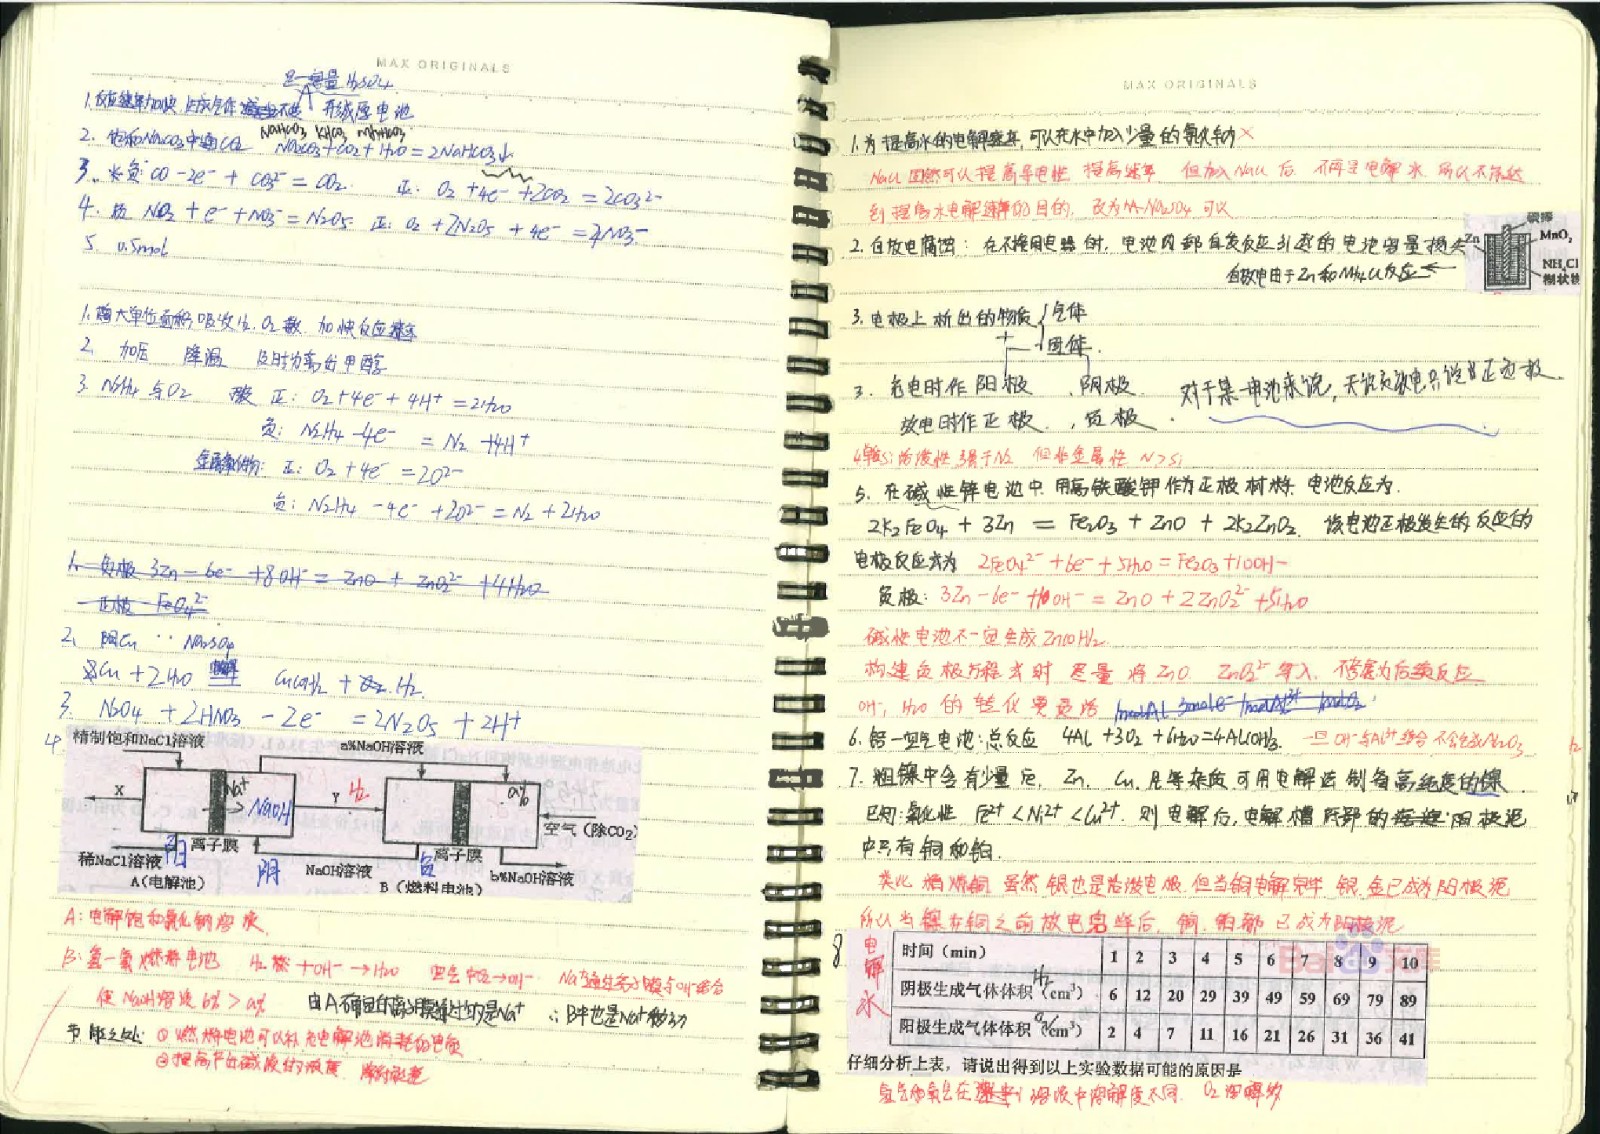 MAX ORIGINALS
H₂SO₄
1. 反应速率加快 形成原电池
NaHCO₃ KHCO₃ NH₄HCO₃
2. 饱和Na₂CO₃中通CO₂ Na₂CO₃+CO₂+H₂O=2NaHCO₃↓
3. 负: CO-2e⁻+CO₃²⁻=CO₂ 正: O₂+4e⁻+2CO₂=2CO₃²⁻
4. NO₂+e⁻+NO₃⁻=N₂O₅ 正: O₂+2N₂O₅+4e⁻=4NO₃⁻
5. 0.5mol
1. 增大单位面积吸收H₂、O₂数 加快反应速率
2. 加压 降温 及时分离出甲醇
3. N₂H₄与O₂ 酸 正: O₂+4e⁻+4H⁺=2H₂O
负: N₂H₄-4e⁻=N₂+4H⁺
正: O₂+4e⁻=2O²⁻
负: N₂H₄-4e⁻+2O²⁻=N₂+2H₂O
1. 负极 3Zn-6e⁻+8OH⁻=ZnO+ZnO₂²⁻+4H₂O
正极 FeO₄²⁻
2. 阳Cu Na₂SO₄
Cu+2H₂O 电解 Cu(OH)₂+H₂
3. N₂O₄+2HNO₃-2e⁻=2N₂O₅+2H⁺
4.
精制饱和NaCl溶液 a%NaOH溶液
X Na⁺ NaOH Y H₂ a%
空气（除CO₂）
稀NaCl溶液 阳 离子膜 阴 NaOH溶液 负 离子膜 b%NaOH溶液
A（电解池） B（燃料电池）
A: 电解饱和氯化钠溶液
B: 氢一氧燃料电池 H₂ +OH⁻→H₂O 空气中O₂→OH⁻ Na⁺通过离子膜与OH⁻结合
使NaOH溶液b%>a% 由A确定在离子膜通过的是Na⁺ ∴B中也是Na⁺移动
节能之处: ①燃料电池可以补充电解池消耗的电能
②提高产出碱液的浓度 降耗
MAX ORIGINALS
1. 为提高水的电解速率,可以在水中加入少量的氯化钠 ×
NaCl固然可以提高导电性 提高速率 但加入NaCl后 不再是电解水 所以不能达
到提高水电解速率的目的, 改为Na₂SO₄可以
2. 自放电腐蚀: 在不接用电器时, 电池内部自发反应引起的电池容量损失
自放电由于Zn和NH₄Cl反应 ←
Zn 碳棒
MnO₂
NH₄Cl
糊状物
3. 电极上析出的物质 { 气体
固体
3. 充电时作阳极 、阴极
放电时作正极 、负极
对于某一电池来说, 无论充放电只说其正负极
4. Si活泼性强于N₂ 但非金属性 N>Si
5. 在碱性锌电池中, 用高铁酸钾作为正极材料, 电池反应为:
2K₂FeO₄+3Zn=Fe₂O₃+ZnO+2K₂ZnO₂. 该电池正极发生的反应的
电极反应式为 2FeO₄²⁻+6e⁻+5H₂O=Fe₂O₃+10OH⁻
负极: 3Zn-6e⁻+10OH⁻=ZnO+2ZnO₂²⁻+5H₂O
碱性电池不一定生成Zn(OH)₂
构建负极方程式时 尽量将ZnO ZnO₂²⁻写入, 不考虑为后续反应
OH⁻, H₂O的转化更灵活
6. 铝一空气电池: 总反应 4Al+3O₂+6H₂O=4Al(OH)₃. 一旦OH⁻与Al³⁺结合 不会生成Al₂O₃
7. 粗镍中含有少量Fe, Zn, Cu, Pt等杂质, 可用电解法制备高纯度的镍
已知: 氧化性 Fe²⁺<Ni²⁺<Cu²⁺. 则电解后, 电解槽底部的阳极泥
中只有铜和铂.
类比精炼铜, 虽然银也是活泼电极, 但当铜电解完毕, 银, 金已成为阳极泥
所以当镍在铜之前放电完毕后, 铜, 铂都已成为阳极泥
8 电解水
时间（min） 1 2 3 4 5 6 7 8 9 10
阴极生成气体体积 H₂（cm³） 6 12 20 29 39 49 59 69 79 89
阳极生成气体体积 O₂（cm³） 2 4 7 11 16 21 26 31 36 41
仔细分析上表，请说出得到以上实验数据可能的原因是
氢气和氧气在溶液中溶解度不同. O₂溶解多